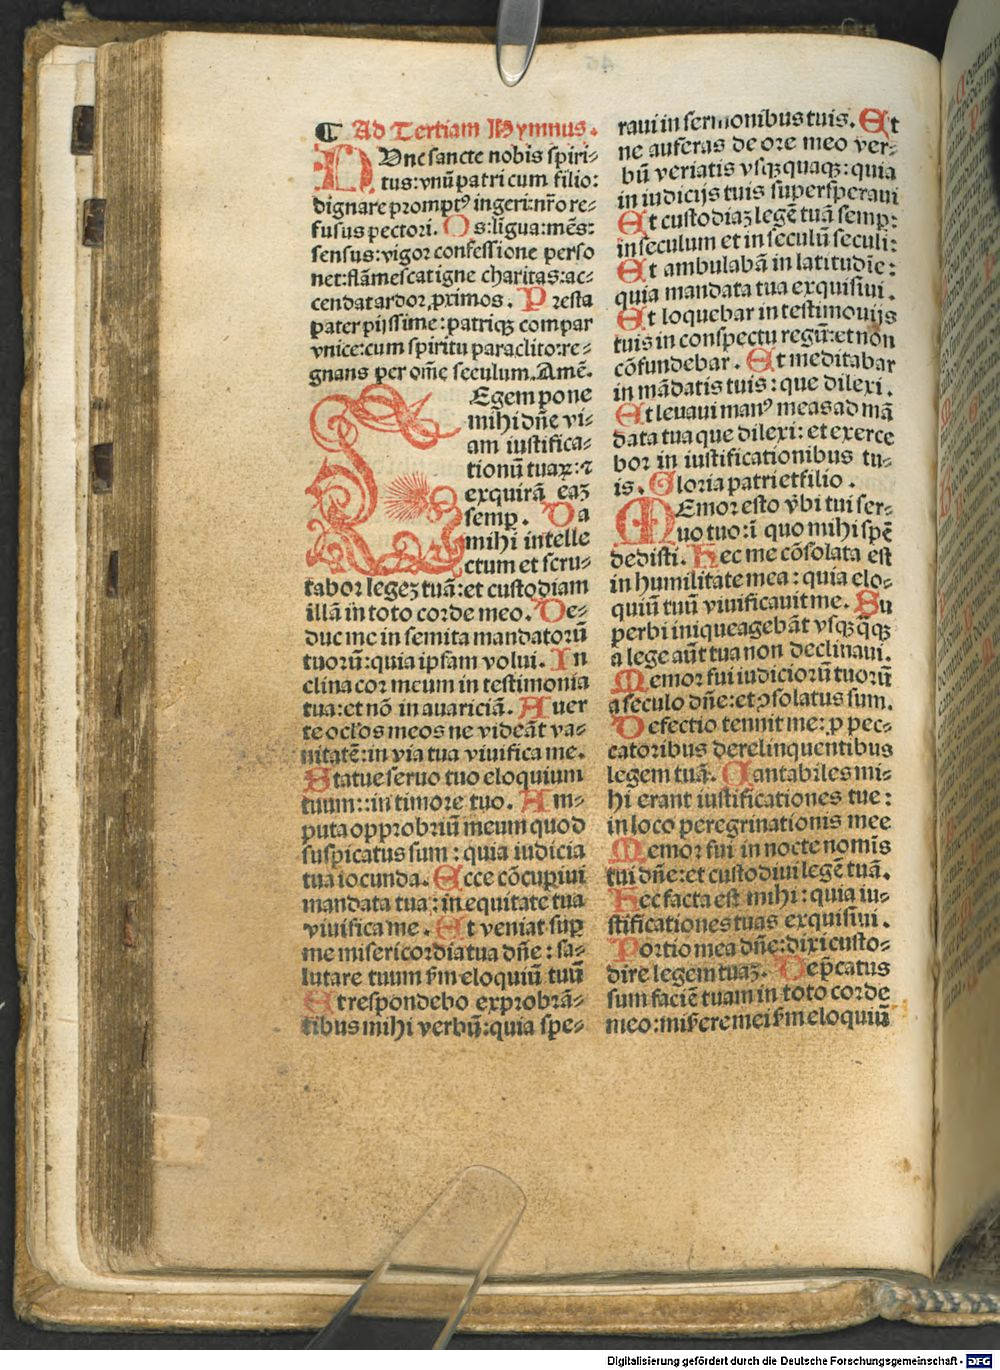 ¶ Ad Tertiam Hymnus.
NUnc sancte nobis spiri-
tus: vnū patri cum filio:
dignare promptꝰ ingeri: nr̄o re-
fusus pectori. Os: ligua: mēs:
sensus: vigor confessione perso
net: flāmescat igne charitas: ac-
cendat ardor ꝓximos. Presta
pater pijssime: patriqꝫ compar
vnice: cum spiritu paraclito: re-
gnans per om̄e seculum. Amē.
LEgem pone
mihi dn̄e vi-
am iustifica-
tionū tuaꝝ: ⁊
exquirā eaꝫ
semꝑ. Da
mihi intelle
ctum et scru-
tabor legeꝫ tuā: et custodiam
illā in toto corde meo. De-
duc me in semita mandatorū
tuorū: quia ipsam volui. In
clina cor meum in testimonia
tua: et nō in auariciā. Auer
te oc̄los meos ne videāt va-
nitatē: in via tua viuifica me.
Statue seruo tuo eloquium
tuum:: in timore tuo. Am-
puta opprobriū meum quod
suspicatus sum: quia iudicia
tua iocunda. Ecce cōcupiui
mandata tua: in equitate tua
viuifica me. Et veniat suꝑ
me misericordia tua dn̄e: sa-
lutare tuum ẜm eloquiū tuū
Et respondebo exprobrā-
tibus mihi verbū: quia spe-
raui in sermonibus tuis. Et
ne auferas de ore meo ver-
bū veritatis vsqꝫquaqꝫ: quia
in iudicijs tuis supersperaui
Et custodiaꝫ legē tuā semꝑ:
in seculum et in seculū seculi:
Et ambulabā in latitudīe:
quia mandata tua exquisiui.
Et loquebar in testimonijs
tuis in conspectu regū: et non
cōfundebar. Et meditabar
in mādatis tuis: que dilexi.
Et leuaui manꝰ meas ad mā
data tua que dilexi: et exerce
bor in iustificationibus tu-
is. Gloria patri et filio.
MEmor esto v̄bi tui ser-
uo tuo: ī quo mihi spē
dedisti. Hec me cōsolata est
in humilitate mea: quia elo-
quiū tuū viuificauit me. Su
perbi inique agebāt vsqꝫq̄qꝫ
a lege aūt tua non declinaui.
Memor fui iudiciorū tuorū
a seculo dn̄e: et ꝯsolatus sum.
Defectio tenuit me: ꝓ pec-
catoribus derelinquentibus
legem tuā. Cantabiles mi-
hi erant iustificationes tue:
in loco peregrinationis mee
Memor fui in nocte nomīs
tui dn̄e: et custodiui legē tuā.
Hec facta est mihi: quia iu-
stificationes tuas exquisiui.
Portio mea dn̄e: dixi custo-
dire legem tuaꝫ. Dep̄catus
sum faciē tuam in toto corde
meo: miẜere mei ẜm eloquiū
Digitalisierung gefördert durch die Deutsche Forschungsgemeinschaft - DFG